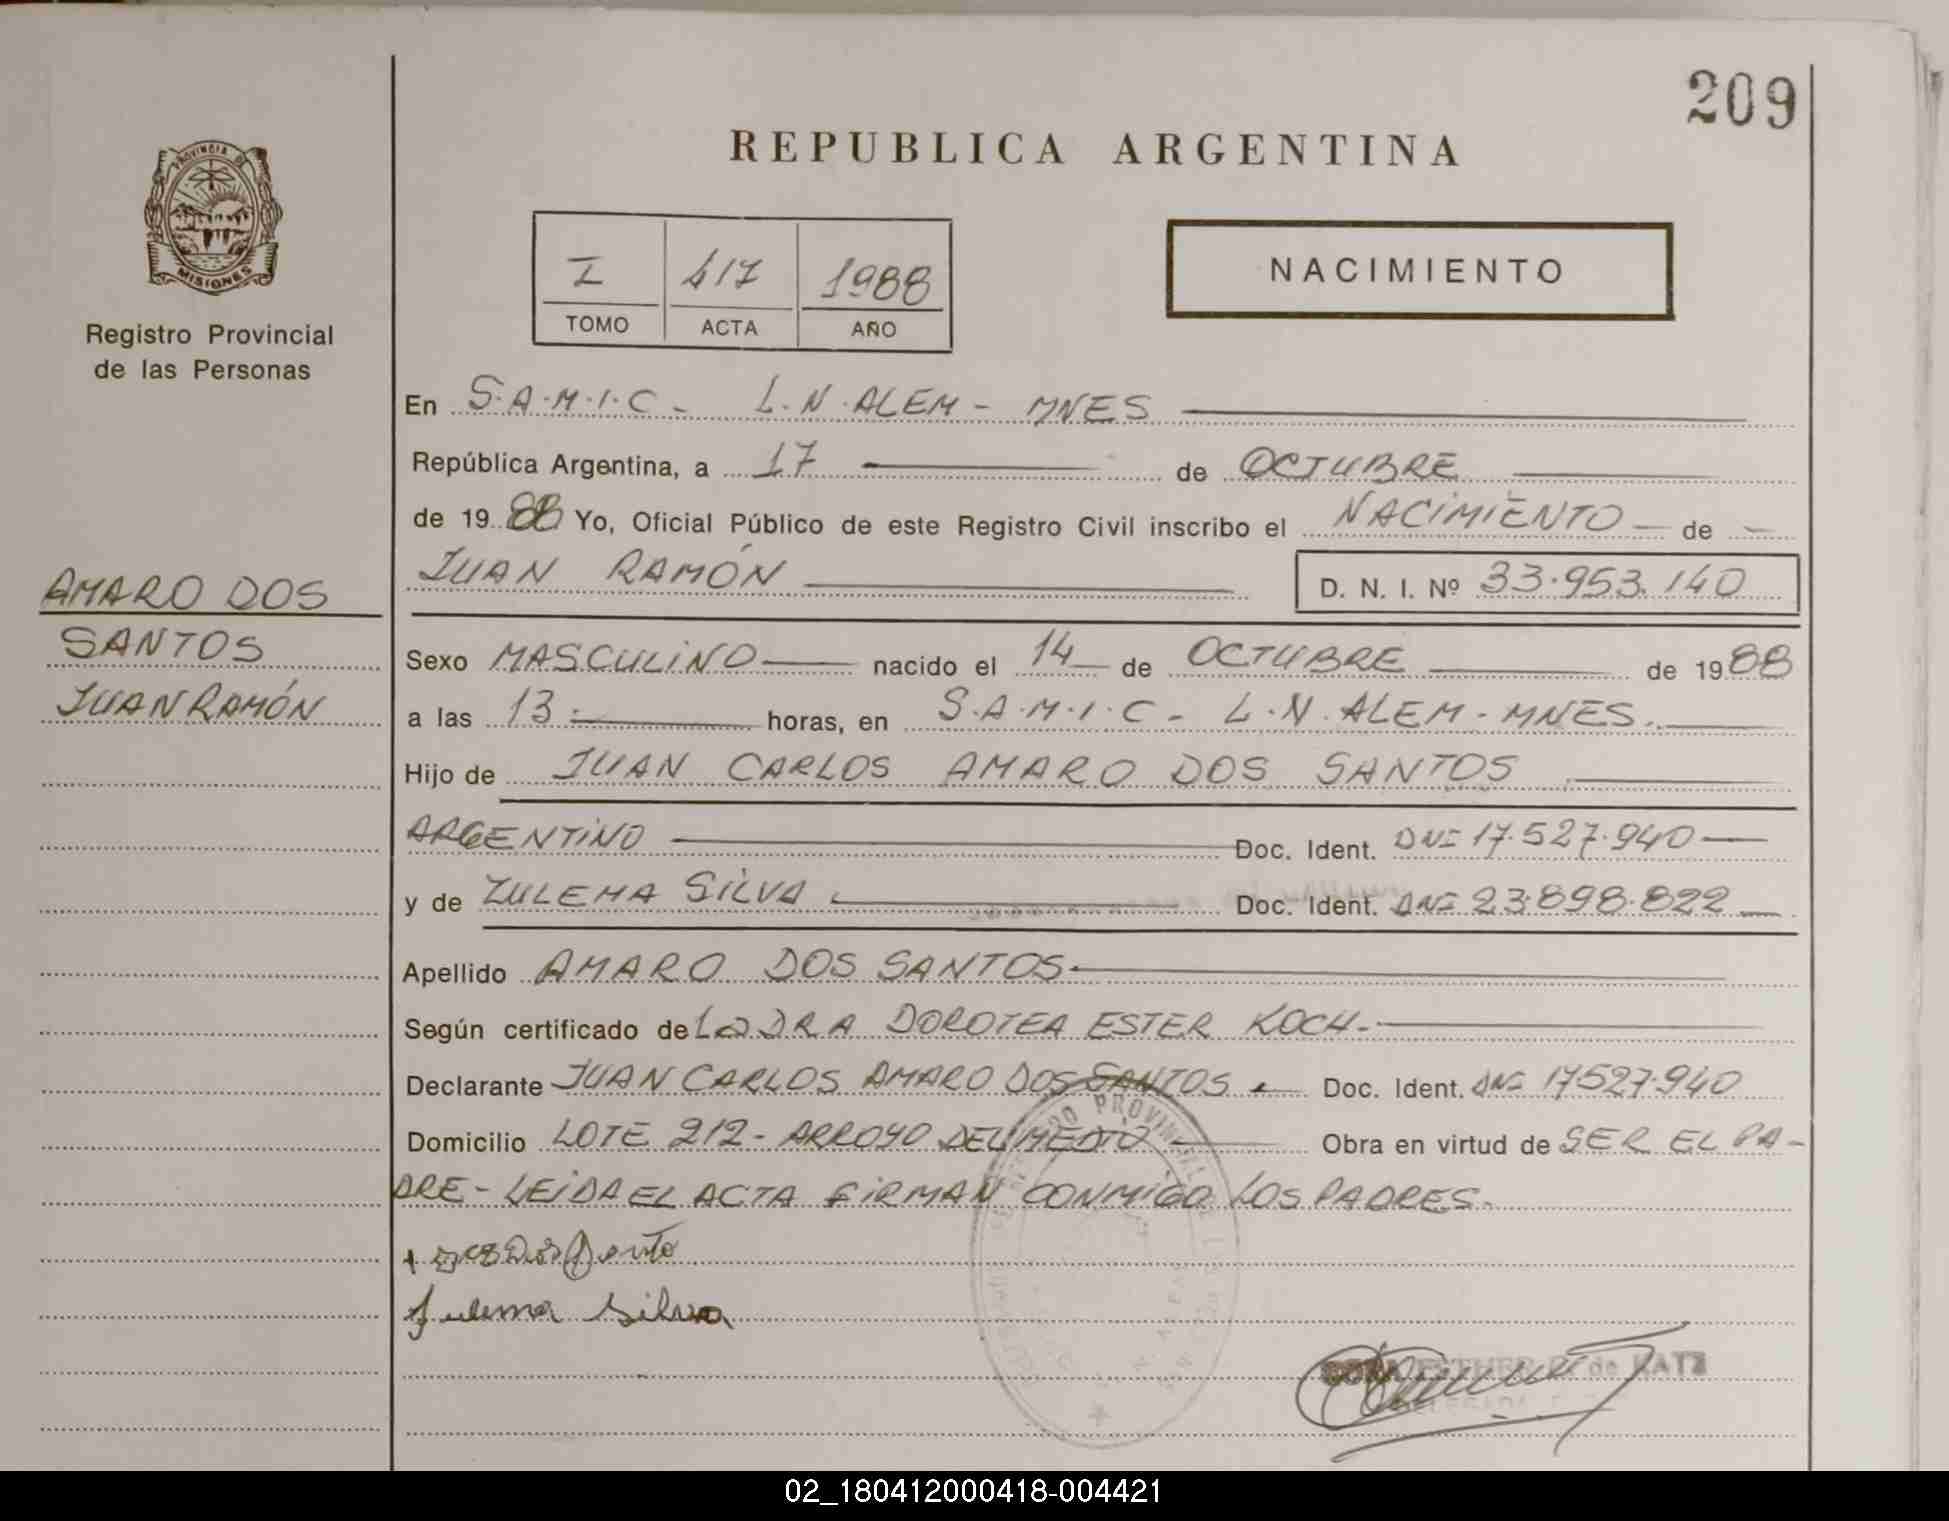 209
REPUBLICA ARGENTINA
PROVINCIA DE
MISIONES
Registro Provincial
de las Personas
I 417 1988
TOMO ACTA AÑO
NACIMIENTO
En S.A.M.I.C - L.N.ALEM - MNES
República Argentina, a 17 de OCTUBRE
de 1988 Yo, Oficial Público de este Registro Civil inscribo el NACIMIENTO de
JUAN RAMÓN D. N. I. Nº 33.953.140
AMARO DOS
SANTOS
JUAN RAMÓN
Sexo MASCULINO nacido el 14 de OCTUBRE de 1988
a las 13 horas, en S.A.M.I.C - L.N.ALEM - MNES.
Hijo de JUAN CARLOS AMARO DOS SANTOS
ARGENTINO Doc. Ident. DNI 17.527.940
y de ZULEMA SILVA Doc. Ident. DNI 23.898.822
Apellido AMARO DOS SANTOS
Según certificado de LA DRA DOROTEA ESTER KOCH.
Declarante JUAN CARLOS AMARO DOS SANTOS Doc. Ident. DNI 17527.940
Domicilio LOTE 212 - ARROYO DEL MEDIO Obra en virtud de SER EL PA-
DRE - LEIDA EL ACTA FIRMAN CONMIGO LOS PADRES.
Zulema Silva
ESTHER de KATZ
02_180412000418-004421